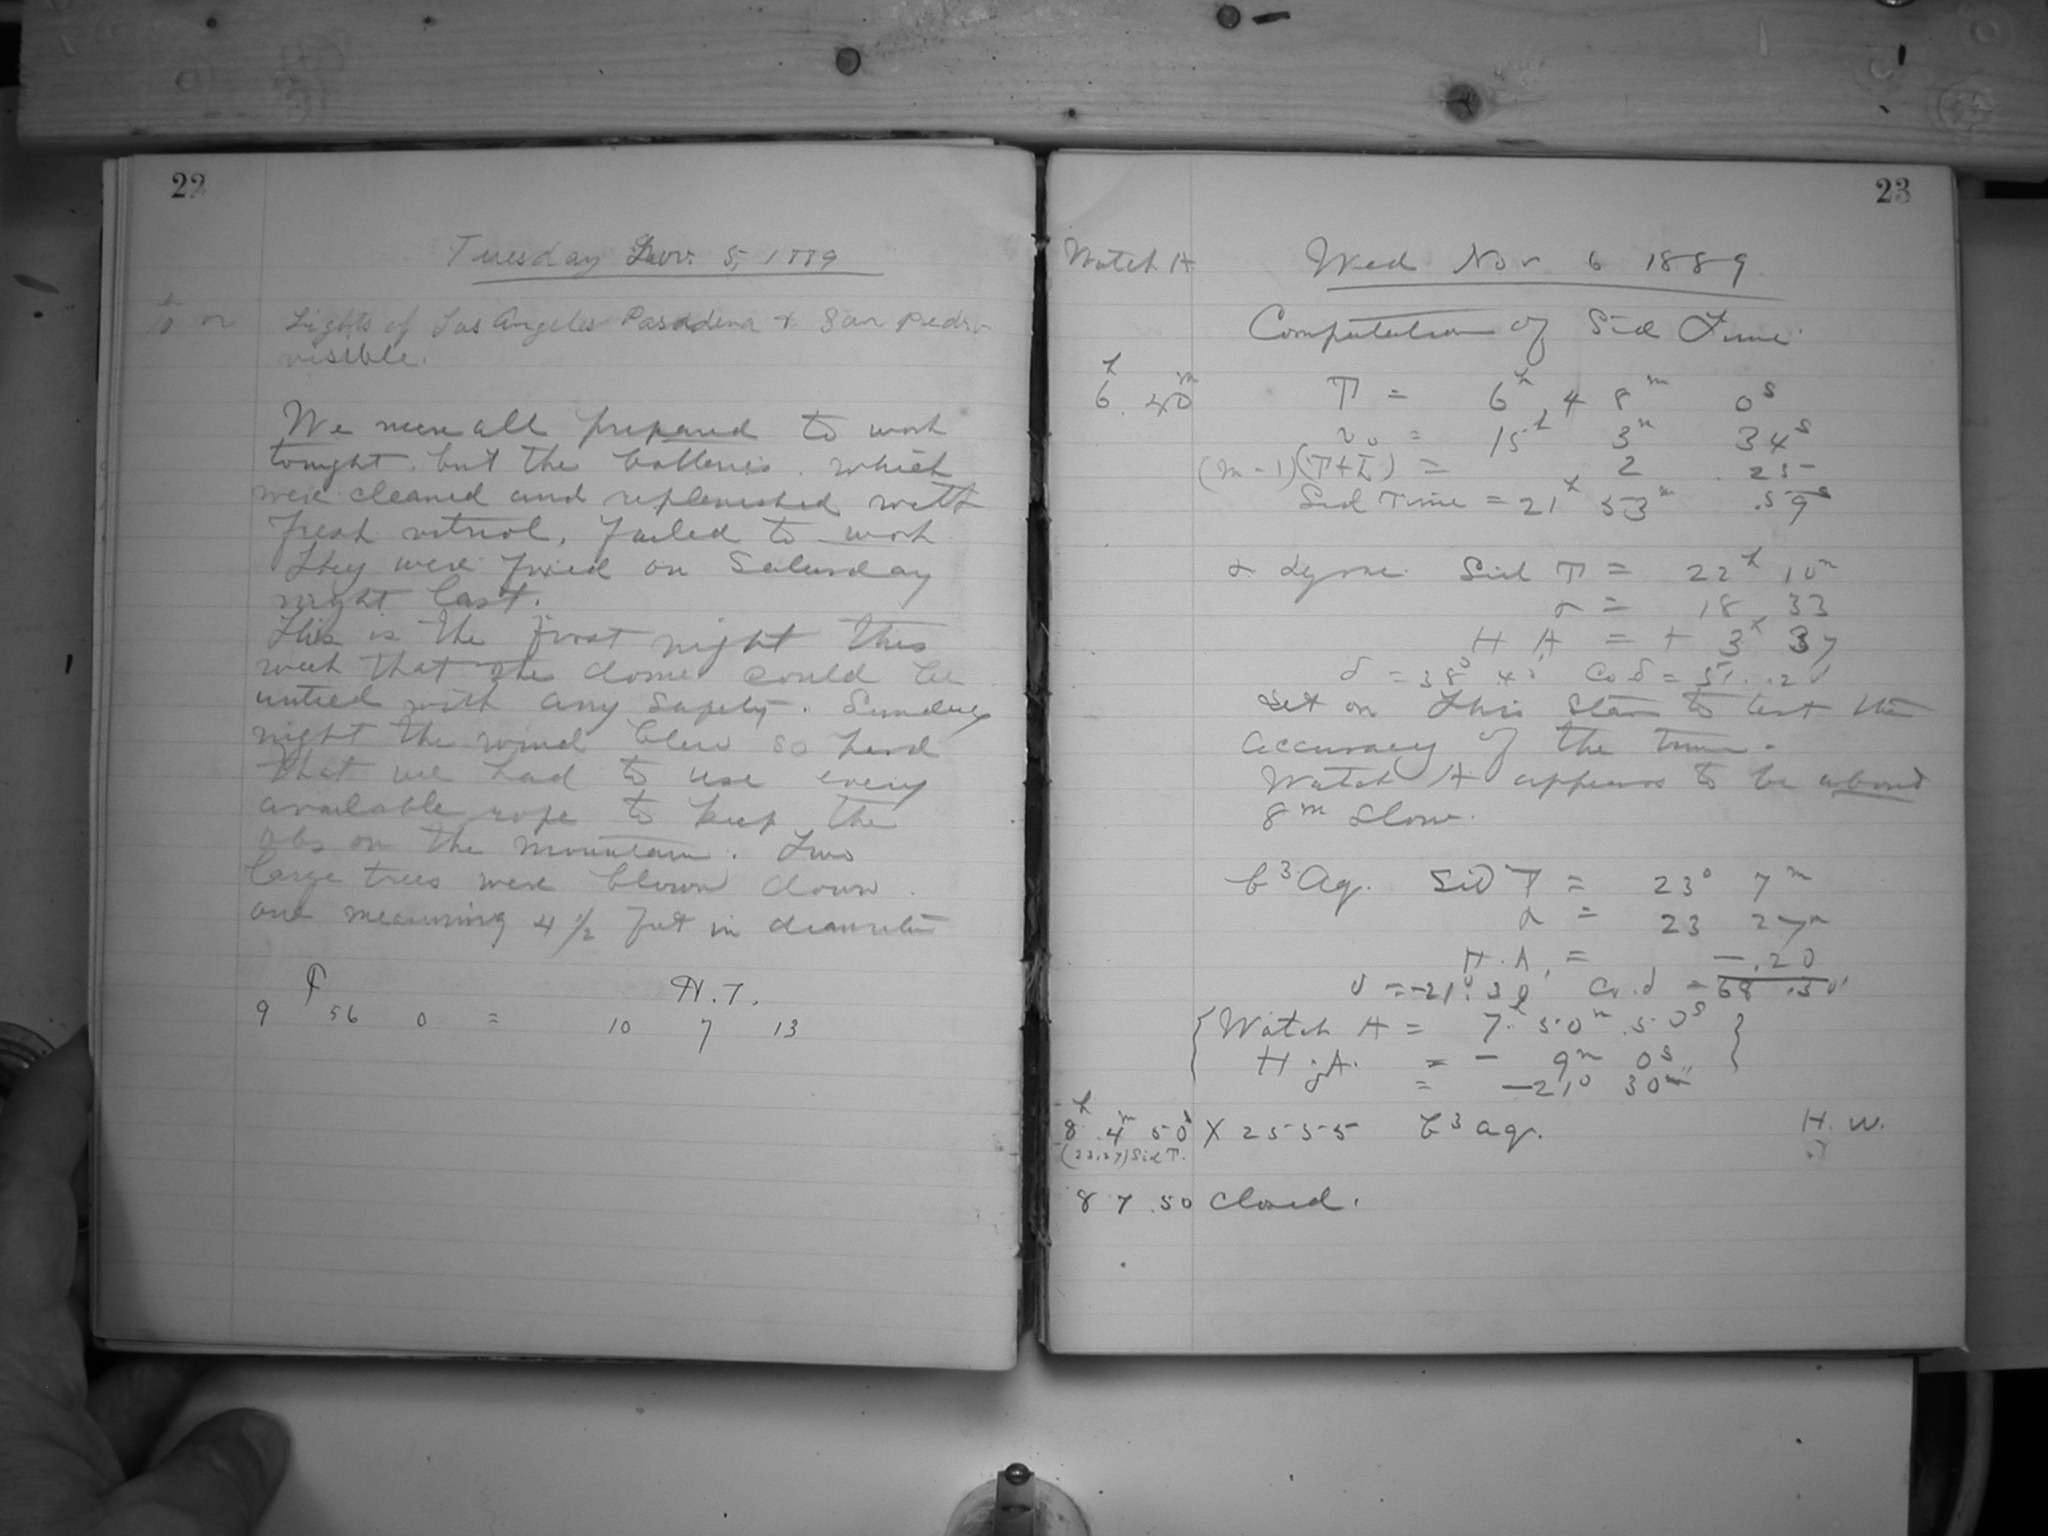 22
Tuesday Nov. 5, 1889
Lights of Los Angeles Pasadena + San Pedro
visible.
We were all prepared to work
tonight, but the batteries, which
were cleaned and replenished with
fresh vitriol, failed to work
They were fixed on Saturday
night last.
This is the first night this
week that the dome could be
untied with any safety. Sunday
night the wind blew so hard
that we had to use every
available rope to keep the
obs on the mountain. Two
large trees were blown down.
one measuring 4 1/2 feet in diameter
T H.T.
9 56 0 = 10 7 13
23
Watch H Wed Nov 6 1889
Computation of Sid Time
6h 40m T = 6h 48m 0s
v0 = 15h 3m 34s
(m-1)(T+L) = 2 25
Sid Time = 21h 53m .59s
α Lyrae. Sid T = 22h 10m
α = 18 33
H A = + 3h 37
δ = 38° 4 Co δ = 51. 20'
Set on this star to test the
accuracy of the time.
Watch H appears to be about
8m slow.
b3 Aq. Sid T = 23° 7m
α = 23 27m
H.A. = - .20
δ = -21° 30' Co. δ = 68 .30'
{ Watch H = 7h 50m .50s }
H.A. = - 9m 0s
= -21° 30"
8h 4m 50s X 2555 b3 aq. H. W.
(23.27) Sid T.
8 7 .50 Closed.